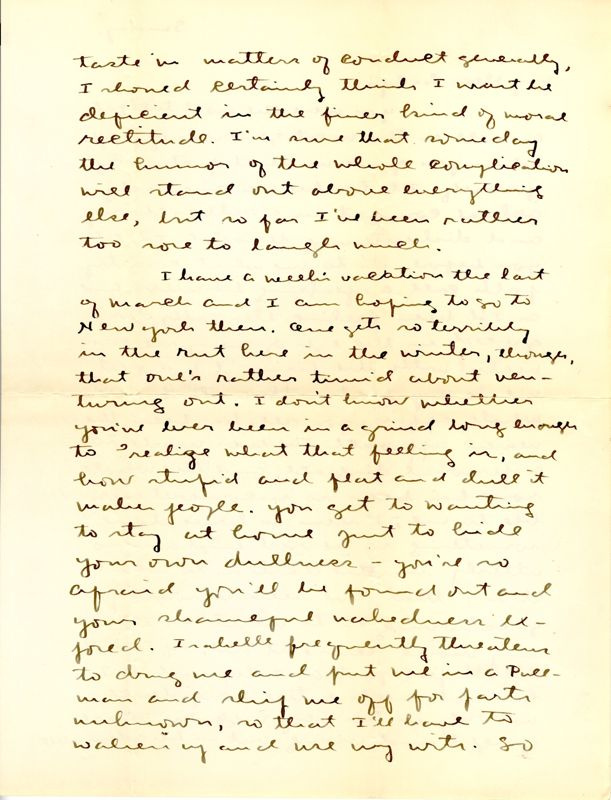 taste in matters of conduct generally,
I shoued certainly think I must be
deficient in the finer kind of moral
rectitude. I'm sure that someday
the humor of the whole complication
will stand out above everything
else, but so far I've been rather
too sore to laugh much.
I have a week's vacation the last
of march and I am hoping to go to
New York then. One gets so terribly
in the rut here in the winter, though,
that one's rather timid about ven-
turing out. I don't know whether
you've ever been in a grind long enough
to realize what that feeling is, and
how stupid and flat and dull it
makes people. You get to wanting
to stay at home just to hide
your own dullness - you're so
afraid you'll be found out and
your shameful nakedness ex-
posed. Isabelle frequently threatens
to drug me and put me in a Pull-
man and ship me off for parts
unknown, so that I'll have to
waken up and use my wits. So